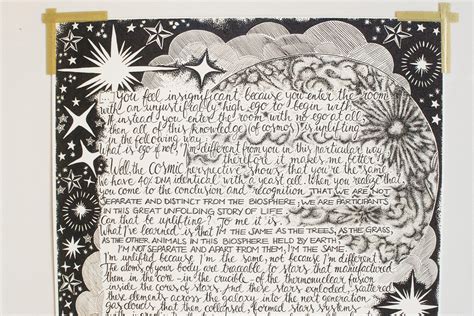 You feel insignificant because you enter the room
with an unjustifiably high ego to begin with.
If instead you enter the room with no ego at all
then all of this knowledge (of cosmos) is uplifting
in the following way:
What is ego if not, I'm different from you in this particular way
therefore it makes me better?
Well, the COSMIC perspective shows that you're the same,
we have 40% DNA identical with a yeast cell. When you realize that
you come to the conclusion and recognition THAT WE ARE NOT
SEPARATE AND DISTINCT FROM THE BIOSPHERE; WE ARE PARTICIPANTS
IN THIS GREAT UNFOLDING STORY OF LIFE.
Can that be uplifting? To me it is.
what I've learned is that I'M THE SAME AS THE TREES, AS THE GRASS,
AS THE OTHER ANIMALS IN THIS BIOSPHERE HELD BY EARTH.
I'M NOT SEPARATE AND APART FROM THEM, I'M THE SAME.
I'm uplifted because I'm the same, not because I'm different.
The atoms of your body are traceable to stars that manufactured
them in the core - in the crucible - of the thermonuclear fusion
inside the cores of stars. And these stars exploded, scattered
these elements across the galaxy into the next generation
gas clouds that then collapsed, formed stars systems